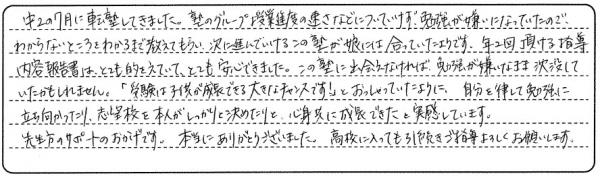 中2の7月に転塾してきました。塾のグループ授業進度の速さなどについていけず、勉強が嫌いになっていたので、
わからないところをわかるまで教えてもらい、次に進んでいけるこの塾が娘には合っていたようです。年2回頂ける指導
内容報告書は、とても的をえていて、とても安心できました。この塾に出会えなければ、勉強が嫌いなまま沈没して
いたかもしれません。「受験は子供が成長できる大きなチャンスです!」とおっしゃっていたように、自分を律して勉強に
立ち向かったり、志望校を本人がしっかりと決めたりと、心身共に成長できたと実感しています。
先生方のサポートのおかげです。本当にありがとうございました。高校に入っても引き続きご指導よろしくお願いします。